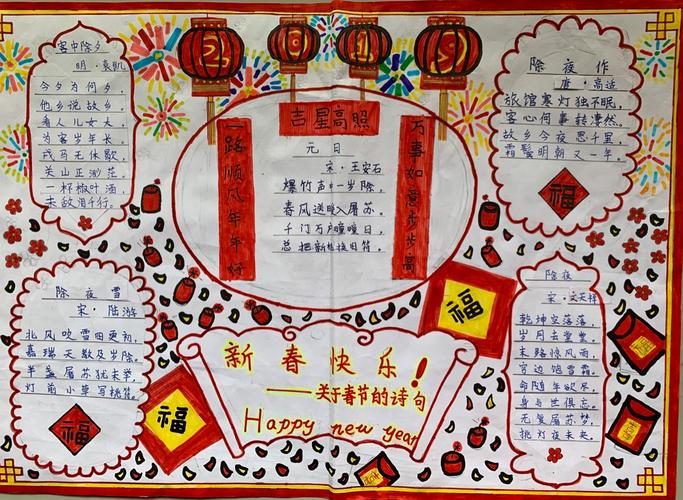 2019
客中除夕
明·袁凯
今夕为何夕，
他乡说故乡。
看人儿女大，
为客岁年长。
戎马无休歇，
关山正渺茫。
一杯椒叶酒，
未敌泪千行。
吉星高照
一路顺风年年好
万事如意步步高
元日
宋·王安石
爆竹声中一岁除，
春风送暖入屠苏。
千门万户曈曈日，
总把新桃换旧符。
除夜作
唐·高适
旅馆寒灯独不眠，
客心何事转凄然。
故乡今夜思千里，
霜鬓明朝又一年。
福
除夜雪
宋·陆游
北风吹雪四更初，
嘉瑞天教及岁除。
半盏屠苏犹未举，
灯前小草写桃符。
福
福
福
新春快乐！
——关于春节的诗句
Happy new year
除夜
宋·文天祥
乾坤空落落，
岁月去堂堂。
末路惊风雨，
穷边饱雪霜。
命随年欲尽，
身与世俱忘。
无复屠苏梦，
挑灯夜未央。